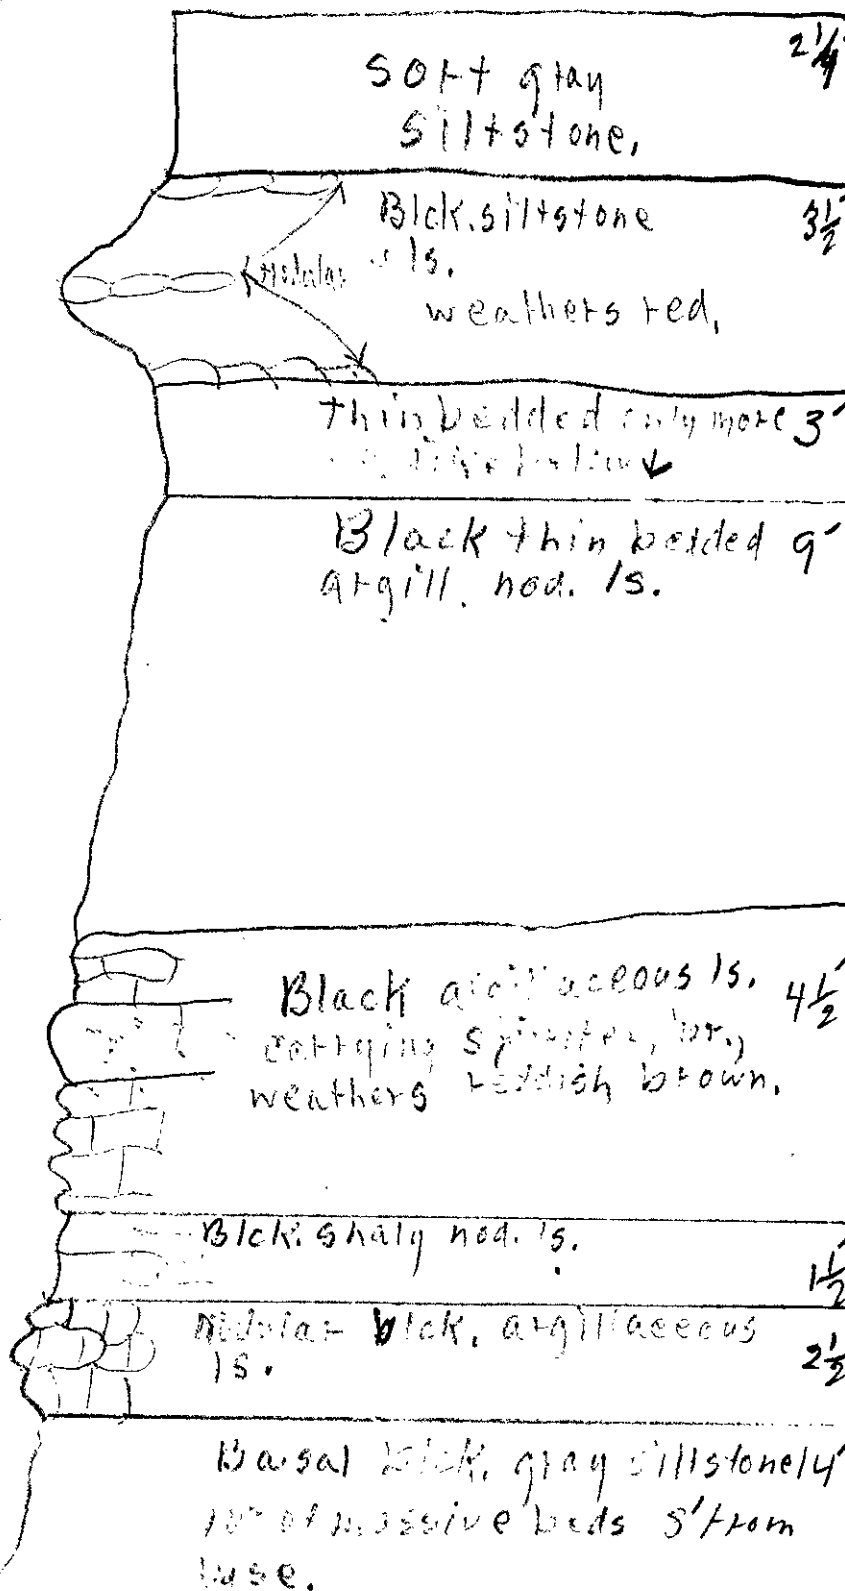 2 1/4'
Soft gray
siltstone.
Blck. siltstone 3 1/2'
ls.
Nodular
weathers red.
thin bedded only more 3'
like below ↓
Black thin bedded 9'
argill. nod. ls.
Black argillaceous ls. 4 1/2'
carrying spirifer, br.,
weathers reddish brown.
Blck. shaly nod. ls.
1 1/2'
Nodular blck. argillaceous
ls. 2 1/2
Basal blck. gray siltstone 14'
of massive beds 5' from
base.